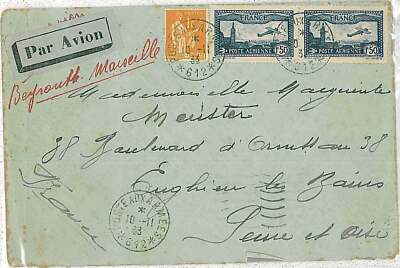 Par Avion
Beyrouth Marseille
FRANCE
POSTE AÉRIENNE
1f50
FRANCE
POSTE AÉRIENNE
1f50
Mademoiselle Marguerite
Meister
88 Boulevard d'Ormesson 38
Enghien les Bains
Seine et Oise
France
POSTE AUX ARMÉES
*
10-11
33
* 612 *